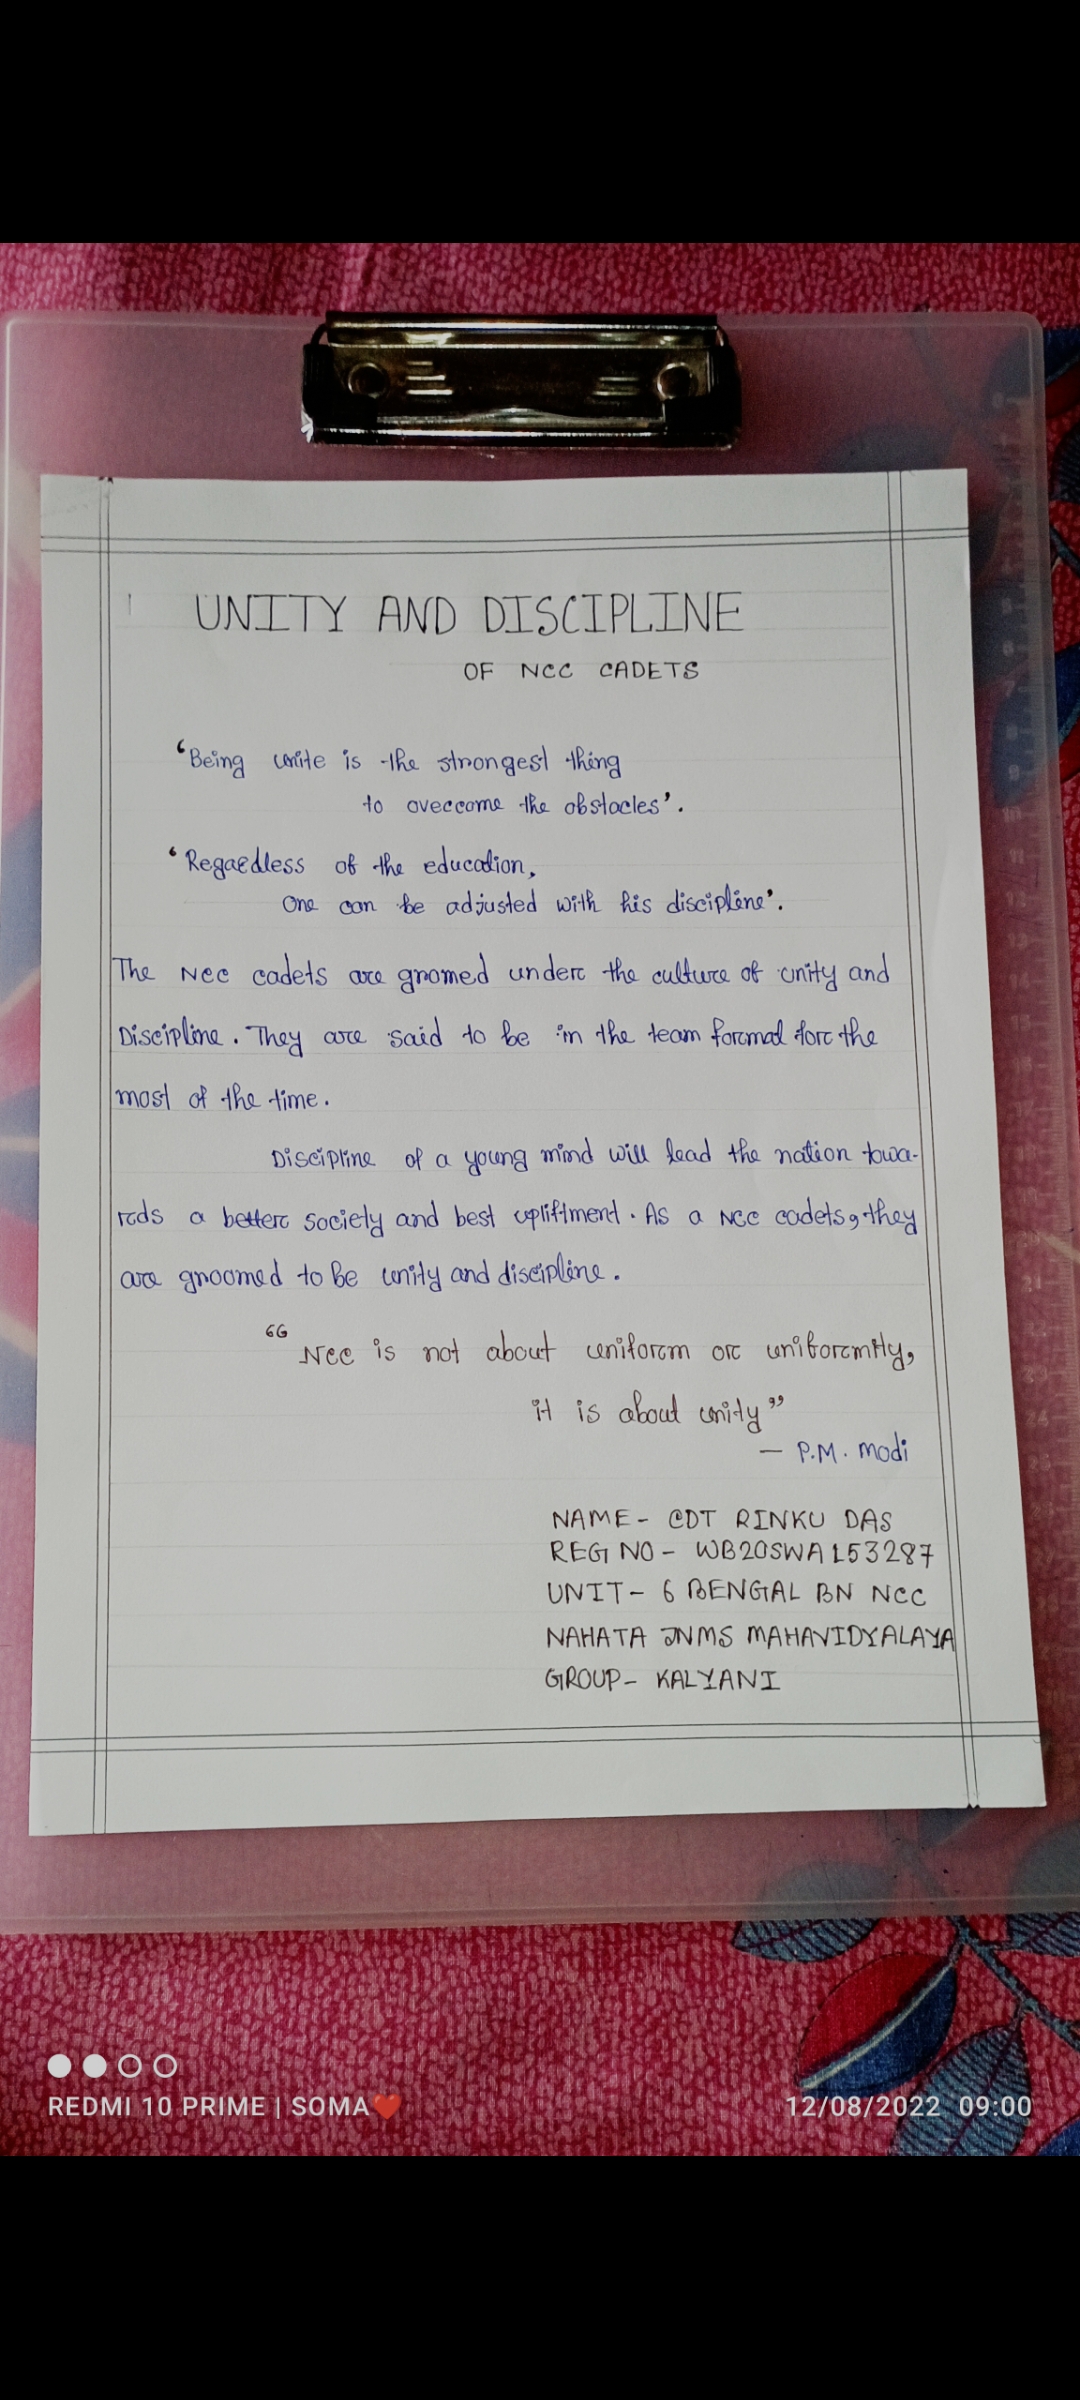 UNITY AND DISCIPLINE
OF NCC CADETS
'Being unite is the strongest thing
to overcome the obstacles'.
'Regardless of the education,
One can be adjusted with his discipline'.
The NCC cadets are gromed under the culture of unity and
Discipline. They are said to be in the team format for the
most of the time.
Discipline of a young mind will lead the nation towa-
rds a better society and best upliftment. As a NCC cadets, they
are groomed to be unity and discipline.
"NCC is not about uniform or uniformity,
it is about unity"
- P.M. Modi
NAME- CDT RINKU DAS
REG NO- WB20SWA153287
UNIT- 6 BENGAL BN NCC
NAHATA JNMS MAHAVIDYALAYA
GROUP- KALYANI
REDMI 10 PRIME | SOMA❤️
12/08/2022 09:00